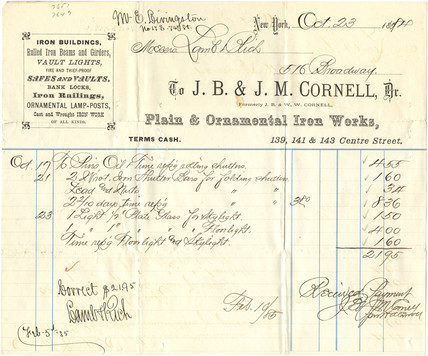 M. E. Livingston
New York, Oct 23 1884
Messrs Lamb & Rich
516 Broadway
IRON BUILDINGS,
Rolled Iron Beams and Girders,
VAULT LIGHTS,
FIRE AND THIEF-PROOF
SAFES AND VAULTS,
BANK LOCKS,
Iron Railings,
ORNAMENTAL LAMP-POSTS,
Cast and Wrought IRON WORK
OF ALL KINDS.
To J. B. & J. M. CORNELL, Dr.
Formerly J. B. & W. W. CORNELL,
Plain & Ornamental Iron Works,
TERMS CASH.
139, 141 & 143 Centre Street.
Oct 17 To Oil Time rep'g rolling shutters 4 55
21 2 Wrot Iron Shutter Bars for folding shutters 1 60
Lead " " 34
2 2/10 days time rep'g " " 380 8 36
23 1 Light Plate Glass for Skylight 1 50
1 " " " " 4 00
Time rep'g and Skylight 1 60
21 95
Correct $21.95
Lamb & Rich
Feb 5th 85
Feb 10/85
Received Payment
J. B. & J. M. Cornell